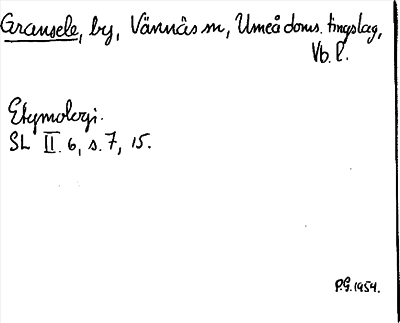 Gransele, by, Vännäs sn, Umeå doms. tingslag,
Vb. l.
Etymologi.
SL II. 6, s. 7, 15.
P.G. 1954.